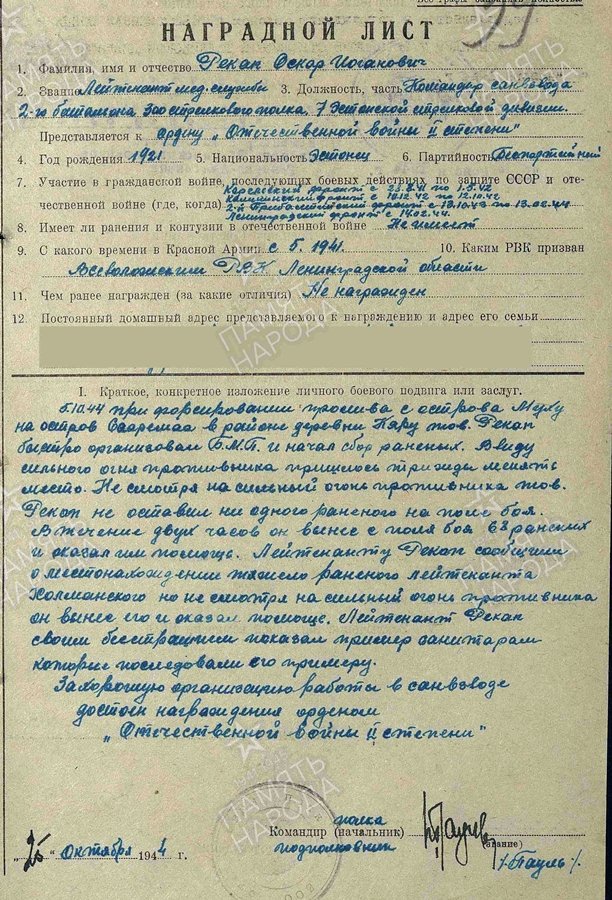 НАГРАДНОЙ ЛИСТ
1. Фамилия, имя и отчество Рекап Оскар Иоганович
2. Звание Лейтенант мед. службы 3. Должность, часть Командир санвзвода
2-го батальона 300 стрелкового полка, 7 Эстонской стрелковой дивизии.
Представляется к ордену "Отечественной войны II степени"
4. Год рождения 1921 5. Национальность Эстонец 6. Партийность Беспартийный
7. Участие в гражданской войне, последующих боевых действиях по защите СССР и оте-
Карельский фронт с 23.8.41 по 1.5.42
Калининский фронт с 10.12.42 по 12.10.43
чественной войне (где, когда) 2-й Прибалтийский фронт с 13.10.43 по 13.02.44
Ленинградский фронт с 14.02.44.
8. Имеет ли ранения и контузии в отечественной войне Не имеет
9. С какого времени в Красной Армии с 5. 1941. 10. Каким РВК призван
Всеволожским РВК Ленинградской области
11. Чем ранее награжден (за какие отличия) Не награжден
12. Постоянный домашний адрес представляемого к награждению и адрес его семьи
I. Краткое, конкретное изложение личного боевого подвига или заслуг.
5.10.44 при форсировании пролива с острова Муху
на остров Сааремаа в районе деревни Кару тов. Рекап
быстро организовал Б.М.П. и начал сбор раненых. Ввиду
сильного огня противника пришлось трижды менять
место. Не смотря на сильный огонь противника тов.
Рекап не оставил ни одного раненого на поле боя.
В течение двух часов он вынес с поля боя 63 раненых
и оказал им помощь. Лейтенанту Рекап сообщили
о местонахождении тяжело раненого лейтенанта
Холманского но не смотря на сильный огонь противника
он вынес его и оказал помощь. Лейтенант Рекап
своим бесстрашием показал пример санитарам
которые последовали его примеру.
За хорошую организацию работы в санвзводе
достоин награждения орденом
"Отечественной войны II степени"
полка
Командир (начальник)
подполковник
(звание)
/Пауль/.
"25" октября 1944 г.
ПАМЯТЬ
НАРОДА